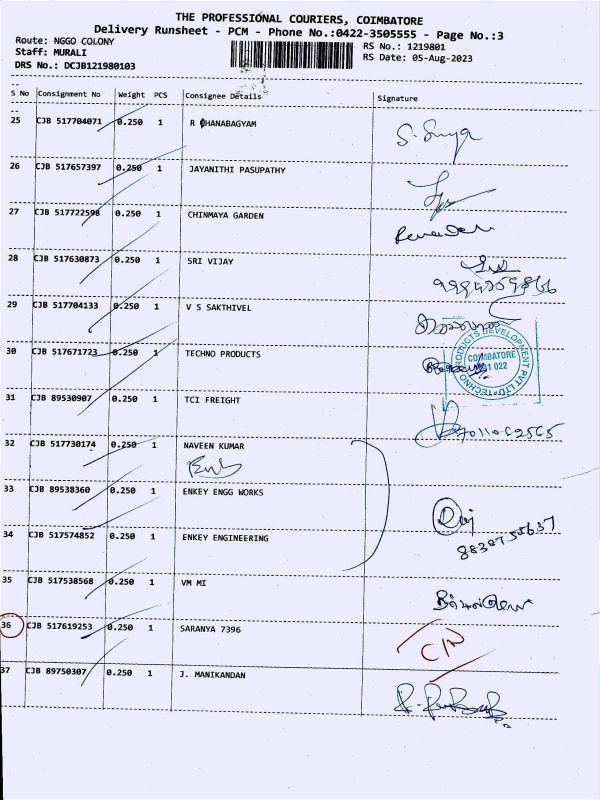 THE PROFESSIONAL COURIERS, COIMBATORE
Delivery Runsheet - PCM - Phone No.:0422-3505555 - Page No.:3
Route: NGGO COLONY
RS No.: 1219801
Staff: MURALI
RS Date: 05-Aug-2023
DRS No.: DCJB121980103
S No Consignment No Weight PCS Consignee Details Signature
25 CJB 517704071 0.250 1 R DHANABAGYAM
26 CJB 517657397 0.250 1 JAYANITHI PASUPATHY
27 CJB 517722598 0.250 1 CHINMAYA GARDEN
28 CJB 517630873 0.250 1 SRI VIJAY
29 CJB 517704133 0.250 1 V S SAKTHIVEL
30 CJB 517671723 0.250 1 TECHNO PRODUCTS
TECHNO PRODUCTS DEVELOPMENT PVT LTD
COIMBATORE
641 022
31 CJB 89530907 0.250 1 TCI FREIGHT
32 CJB 517730174 0.250 1 NAVEEN KUMAR
33 CJB 89538360 0.250 1 ENKEY ENGG WORKS
34 CJB 517574852 0.250 1 ENKEY ENGINEERING
35 CJB 517538568 0.250 1 VM MI
36 CJB 517619253 0.250 1 SARANYA 7396
37 CJB 89750307 0.250 1 J. MANIKANDAN